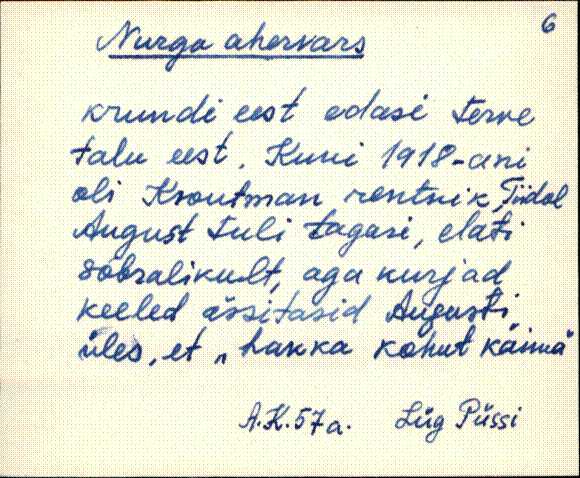 6
Nurga ahervars
krundi eest edasi terve
talu eest. Kuni 1918-ani
oli Kroutman rentnik, Tiidol
August tuli tagasi, elati
sõbralikult, aga kurjad
keeled ässitasid Augusti
üles, et „hakka kohut käima"
A.K. 57 a. Lüg Püssi